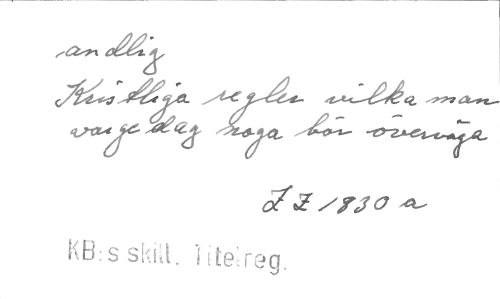 andlig
Kristliga regler vilka man
varge dag noga bör överväga
Z Z 1830 a
KB:s skill. Titelreg.